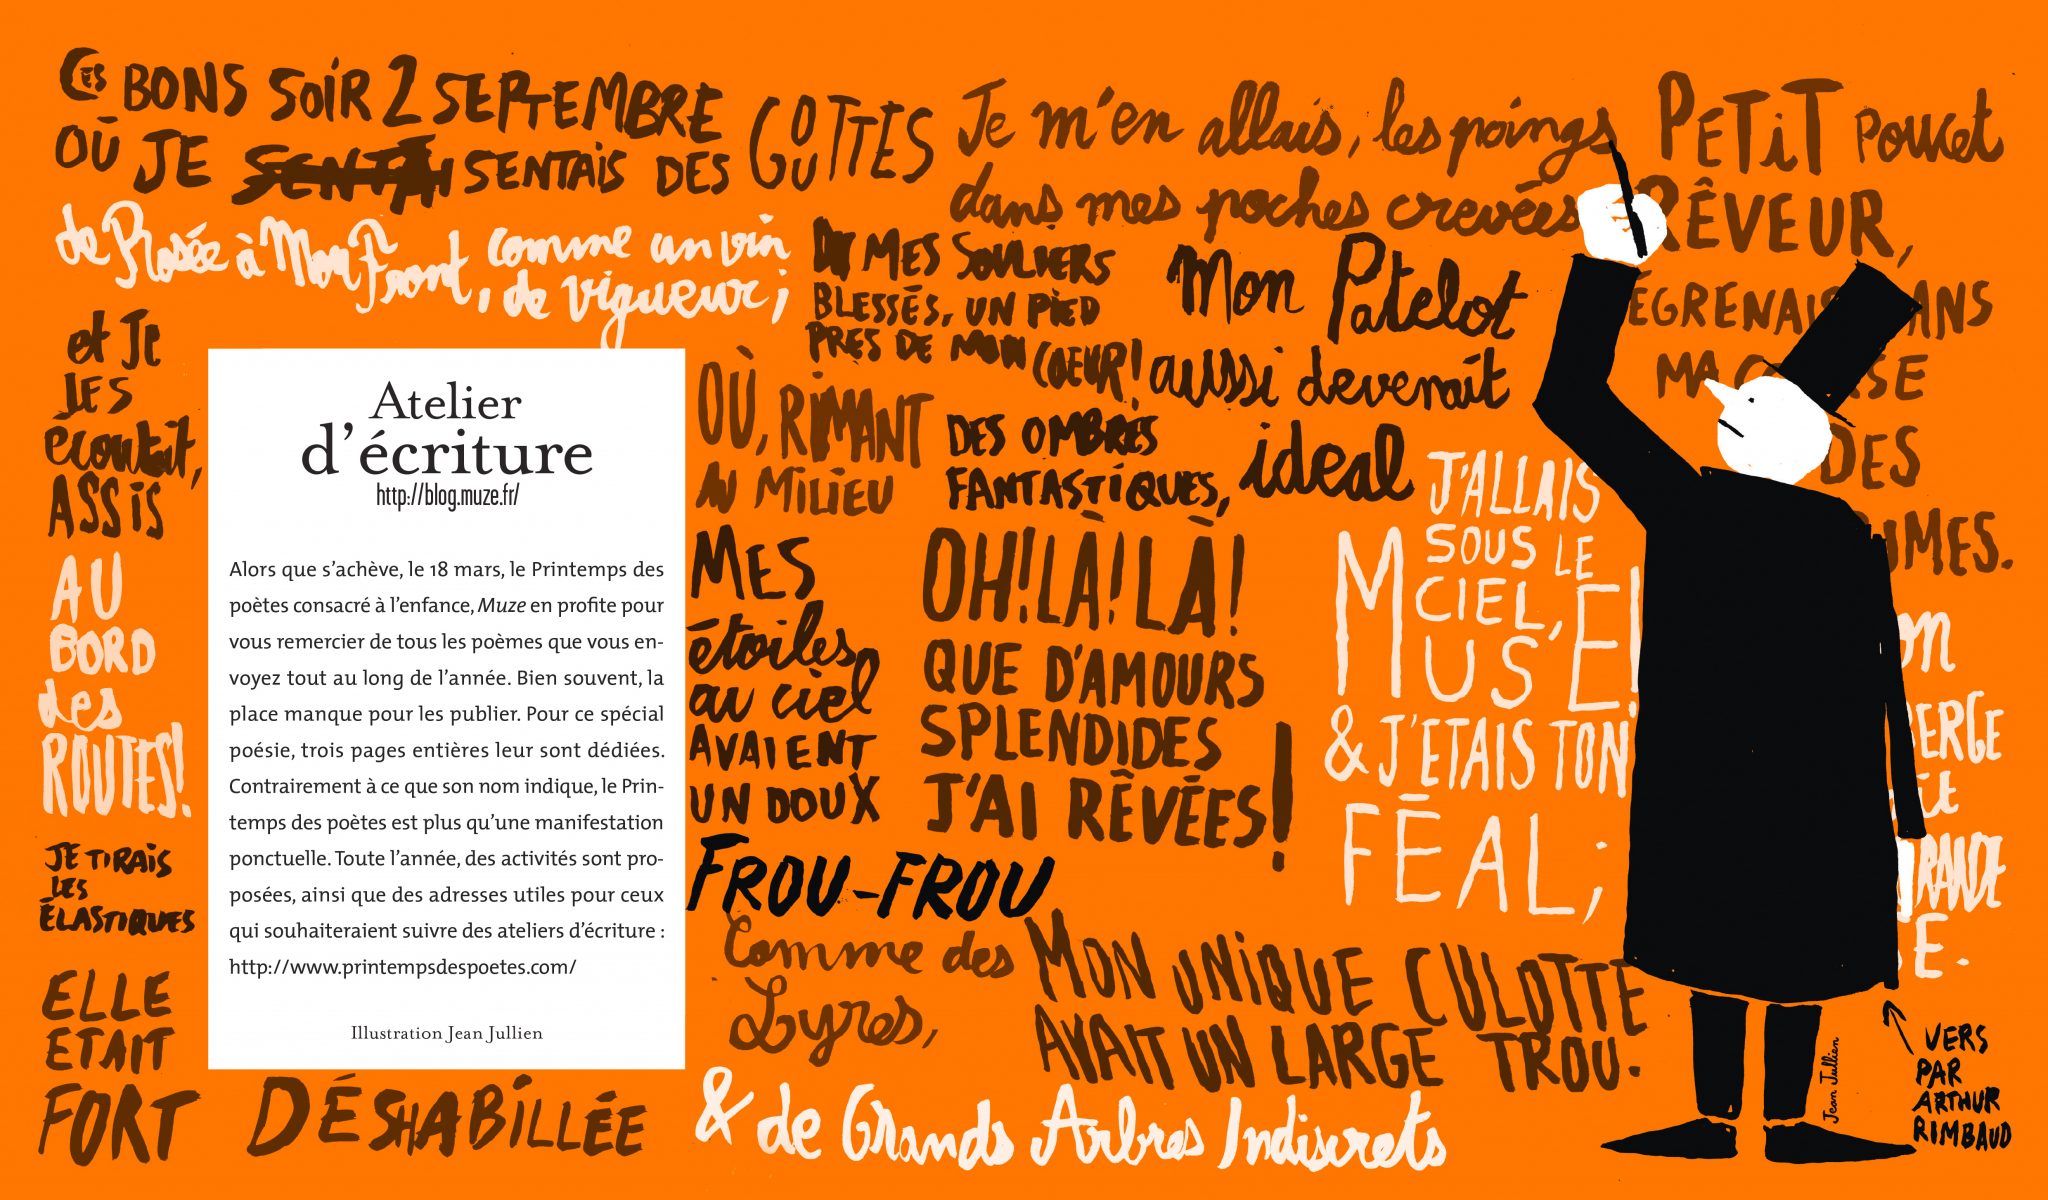 Ces BONS SOIR 2 SEPTEMBRE
OÙ JE SENTAI SENTAIS DES GOUTTES
de Rosée à Mon Front, comme un vin
de vigueur;
et Je
les
écoutait,
ASSIS
AU
BORD
des
ROUTES!
JE TIRAIS
LES
ÉLASTIQUES
ELLE
ETAIT
FORT
DÉSHABILLÉE
Atelier
d'écriture
http://blog.muze.fr/
Alors que s'achève, le 18 mars, le Printemps des
poètes consacré à l'enfance, Muze en profite pour
vous remercier de tous les poèmes que vous en-
voyez tout au long de l'année. Bien souvent, la
place manque pour les publier. Pour ce spécial
poésie, trois pages entières leur sont dédiées.
Contrairement à ce que son nom indique, le Prin-
temps des poètes est plus qu'une manifestation
ponctuelle. Toute l'année, des activités sont pro-
posées, ainsi que des adresses utiles pour ceux
qui souhaiteraient suivre des ateliers d'écriture :
http://www.printempsdespoetes.com/
Illustration Jean Jullien
Je m'en allais, les poings
dans mes poches crevées
MES SOULIERS
BLESSÉS, UN PIED
PRES DE MON COEUR!
Mon Patelot
aussi devenait
ideal
OÙ, RIMANT
AU MILIEU
DES OMBRES
FANTASTIQUES,
MES
étoiles
au ciel
AVAIENT
UN DOUX
FROU-FROU
Comme des
Lyres,
OH! LÀ! LÀ!
QUE D'AMOURS
SPLENDIDES
J'AI RÊVÉES!
J'ALLAIS
SOUS LE
CIEL,
MUSE!
& J'ETAIS TON
FÉAL;
MON UNIQUE CULOTTE
AVAIT UN LARGE TROU.
& de Grands Arbres Indiscrets
PETIT POUCET
RÊVEUR,
EGRENAIS DANS
MA COURSE
DES
RIMES.
on
BERGE
it
RANDE
E.
Jean Jullien
VERS
PAR
ARTHUR
RIMBAUD